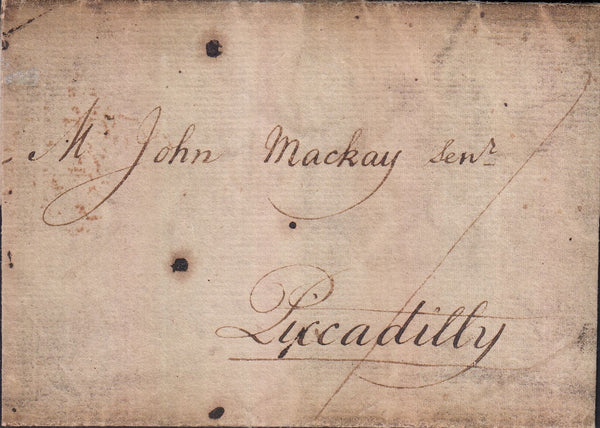 Mr John Mackay Senr
Piccadilly